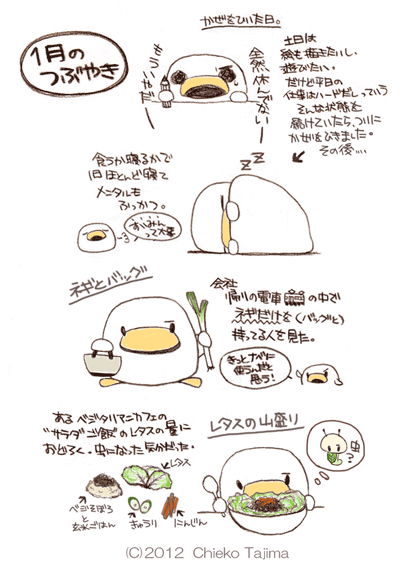 1月の
つぶやき
かぜをひいた日。
全然休んでない…
もういやだ…
土日は
絵も描きたいし、
遊びたい。
だけど平日の
仕事はハードだしっていう
そんな状態を
続けていたら、ついに
かぜをひきました。
その後…
食うか寝るかで
1日ほとんど寝て
メンタルも
ふっかつ。
すいみん
って大事
z z z
ネギとバッグ
会社
帰りの電車の中で
ネギだけを(バッグと)
持ってる人を見た。
きっとナベに
使うんだと
思う!
ある ベジタリアンカフェの
"サラダご飯"のレタスの量に
おどろく。虫になった気分だった。
レタス
ベジそぼろ
と
玄米ごはん
きゅうり
にんじん
レタスの山盛り
虫?
(C)2012 Chieko Tajima